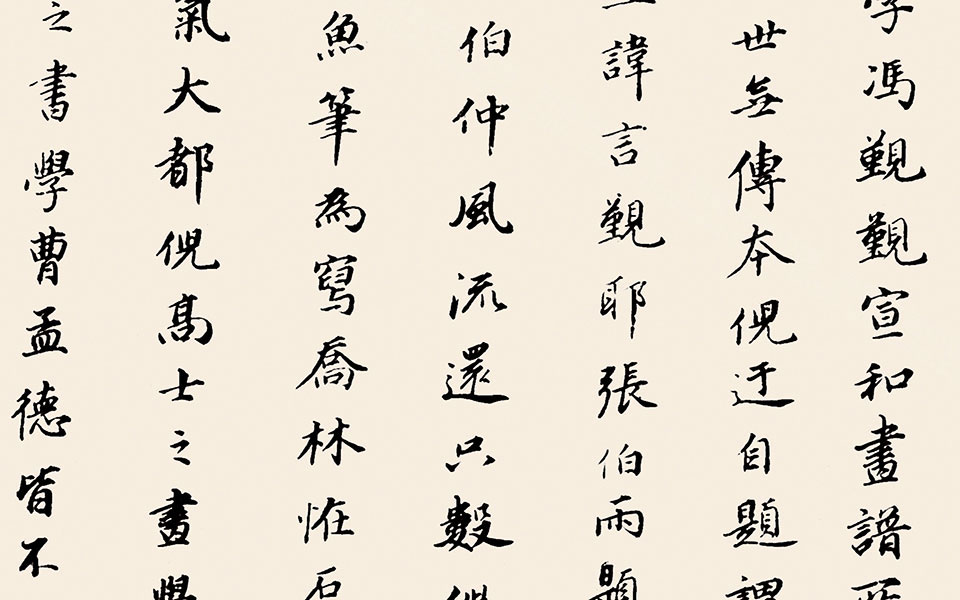 學馮覲覲宣和畫譜所
世無傳本倪迂自題謂
諱言覲耶張伯雨題
伯仲風流還只數倪
魚筆為寫喬林恠石
氣大都倪高士之畫學
之書學曹孟德皆不